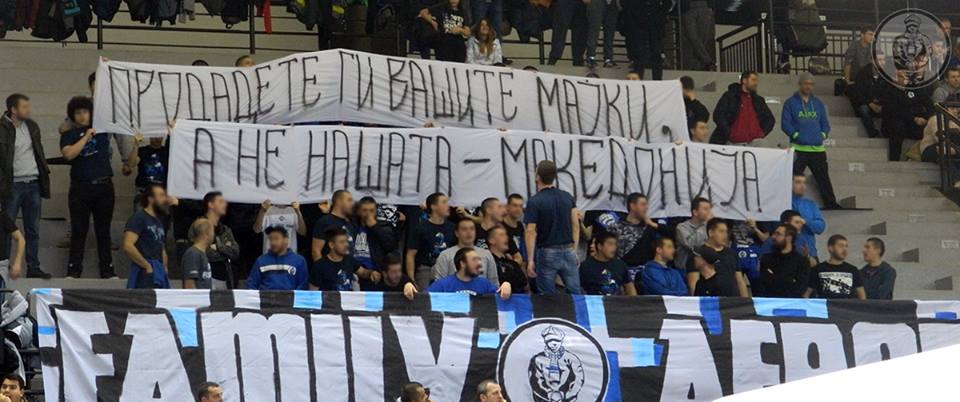 ПРОДАДЕТЕ ГИ ВАШИТЕ МАЈКИ,
А НЕ НАШАТА – МАКЕДОНИЈА
FAMILY